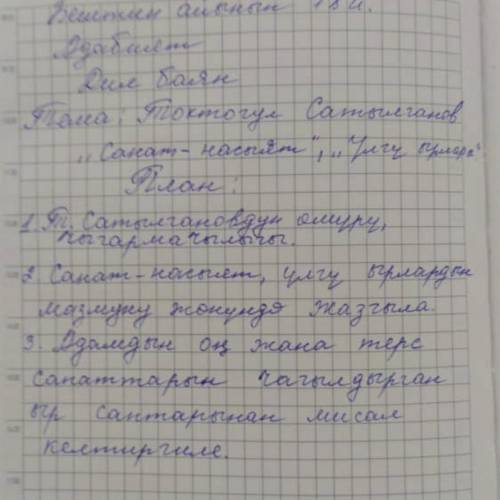 Бештин айынын 18 и.
Адабият
Дил баян
Тема: Токтогул Сатылганов
„Санат-насыят", „Үлгү ырлары"
План:
1. Т. Сатылгановдун омуру,
чыгармачылыгы.
2. Санат-насыят, үлгү ырлардын
мазмуну жонундө жазгыла.
3. Адамдын оң жана терс
сапаттарын чагылдырган
ыр саптарынан мисал
келтиргиле.